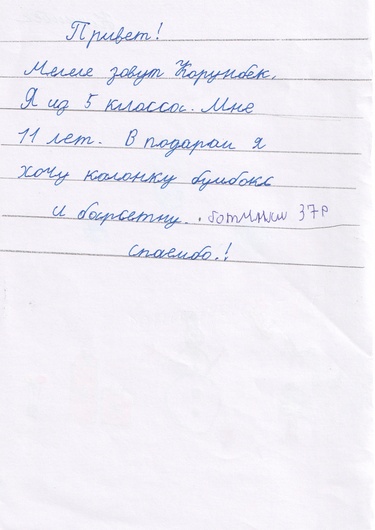 Привет!
Меня зовут Корунбек.
Я из 5 класса. Мне
11 лет. В подарок я
хочу колонку бумбокс
и барсетку. ботинки 37р
спасибо.!